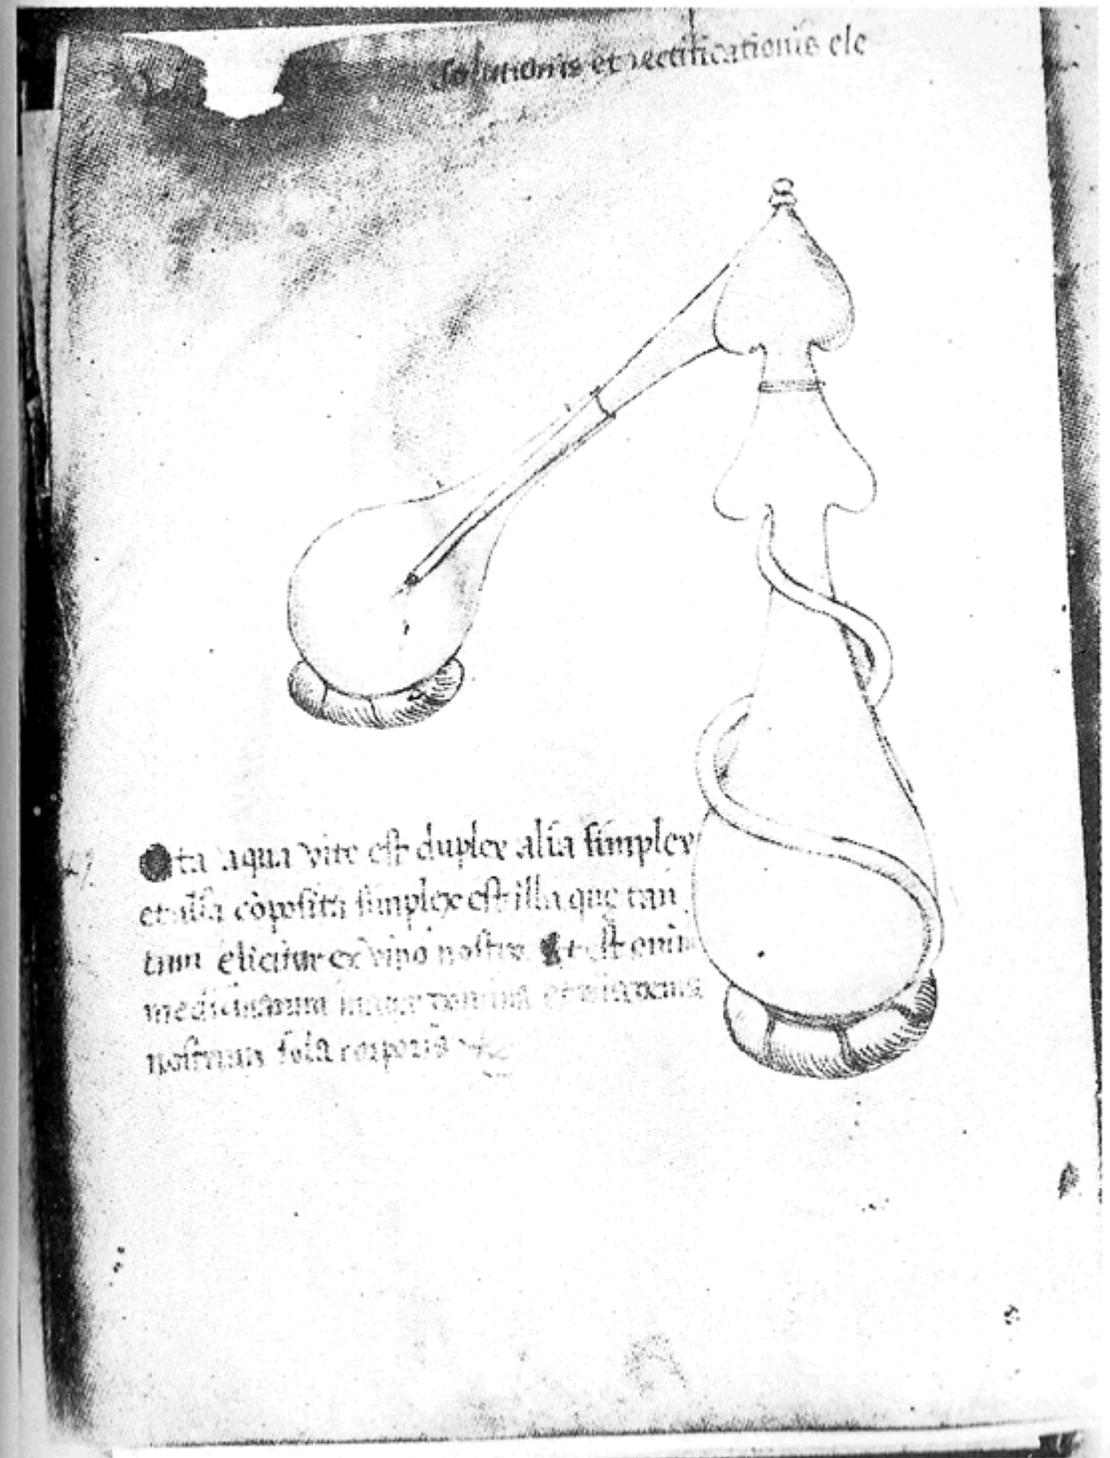 solutionis et rectificationis ele
ta aqua vite est duplex alia simplex
et alia cōposita simplex est illa que tan
tum elicitur ex vino nostro Et est
medicinarum et
nostrum sola corporis